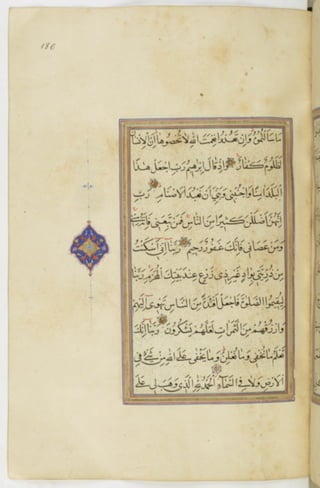 186
مَا سَاَلْتُمُوهُ وَاِنْ تَعُدُّوا نِعْمَتَ اللّٰهِ لَا تُحْصُوهَا اِنَّ الْاِنْسَانَ
لَظَلُومٌ كَفَّارٌ وَاِذْ قَالَ اِبْرٰهِيمُ رَبِّ اجْعَلْ هٰذَا
الْبَلَدَ اٰمِنًا وَاجْنُبْنِي وَبَنِيَّ اَنْ نَعْبُدَ الْاَصْنَامَ رَبِّ
اِنَّهُنَّ اَضْلَلْنَ كَثِيرًا مِنَ النَّاسِ فَمَنْ تَبِعَنِي فَاِنَّهُ مِنِّي
وَمَنْ عَصَانِي فَاِنَّكَ غَفُورٌ رَحِيمٌ رَبَّنَا اِنِّي اَسْكَنْتُ
مِنْ ذُرِّيَّتِي بِوَادٍ غَيْرِ ذِي زَرْعٍ عِنْدَ بَيْتِكَ الْمُحَرَّمِ رَبَّنَا
لِيُقِيمُوا الصَّلٰوةَ فَاجْعَلْ اَفْئِدَةً مِنَ النَّاسِ تَهْوِي اِلَيْهِمْ
وَارْزُقْهُمْ مِنَ الثَّمَرَاتِ لَعَلَّهُمْ يَشْكُرُونَ رَبَّنَا اِنَّكَ
تَعْلَمُ مَا نُخْفِي وَمَا نُعْلِنُ وَمَا يَخْفَى عَلَى اللّٰهِ مِنْ شَيْءٍ فِي
الْاَرْضِ وَلَا فِي السَّمَاءِ اَلْحَمْدُ لِلّٰهِ الَّذِي وَهَبَ لِي عَلَى